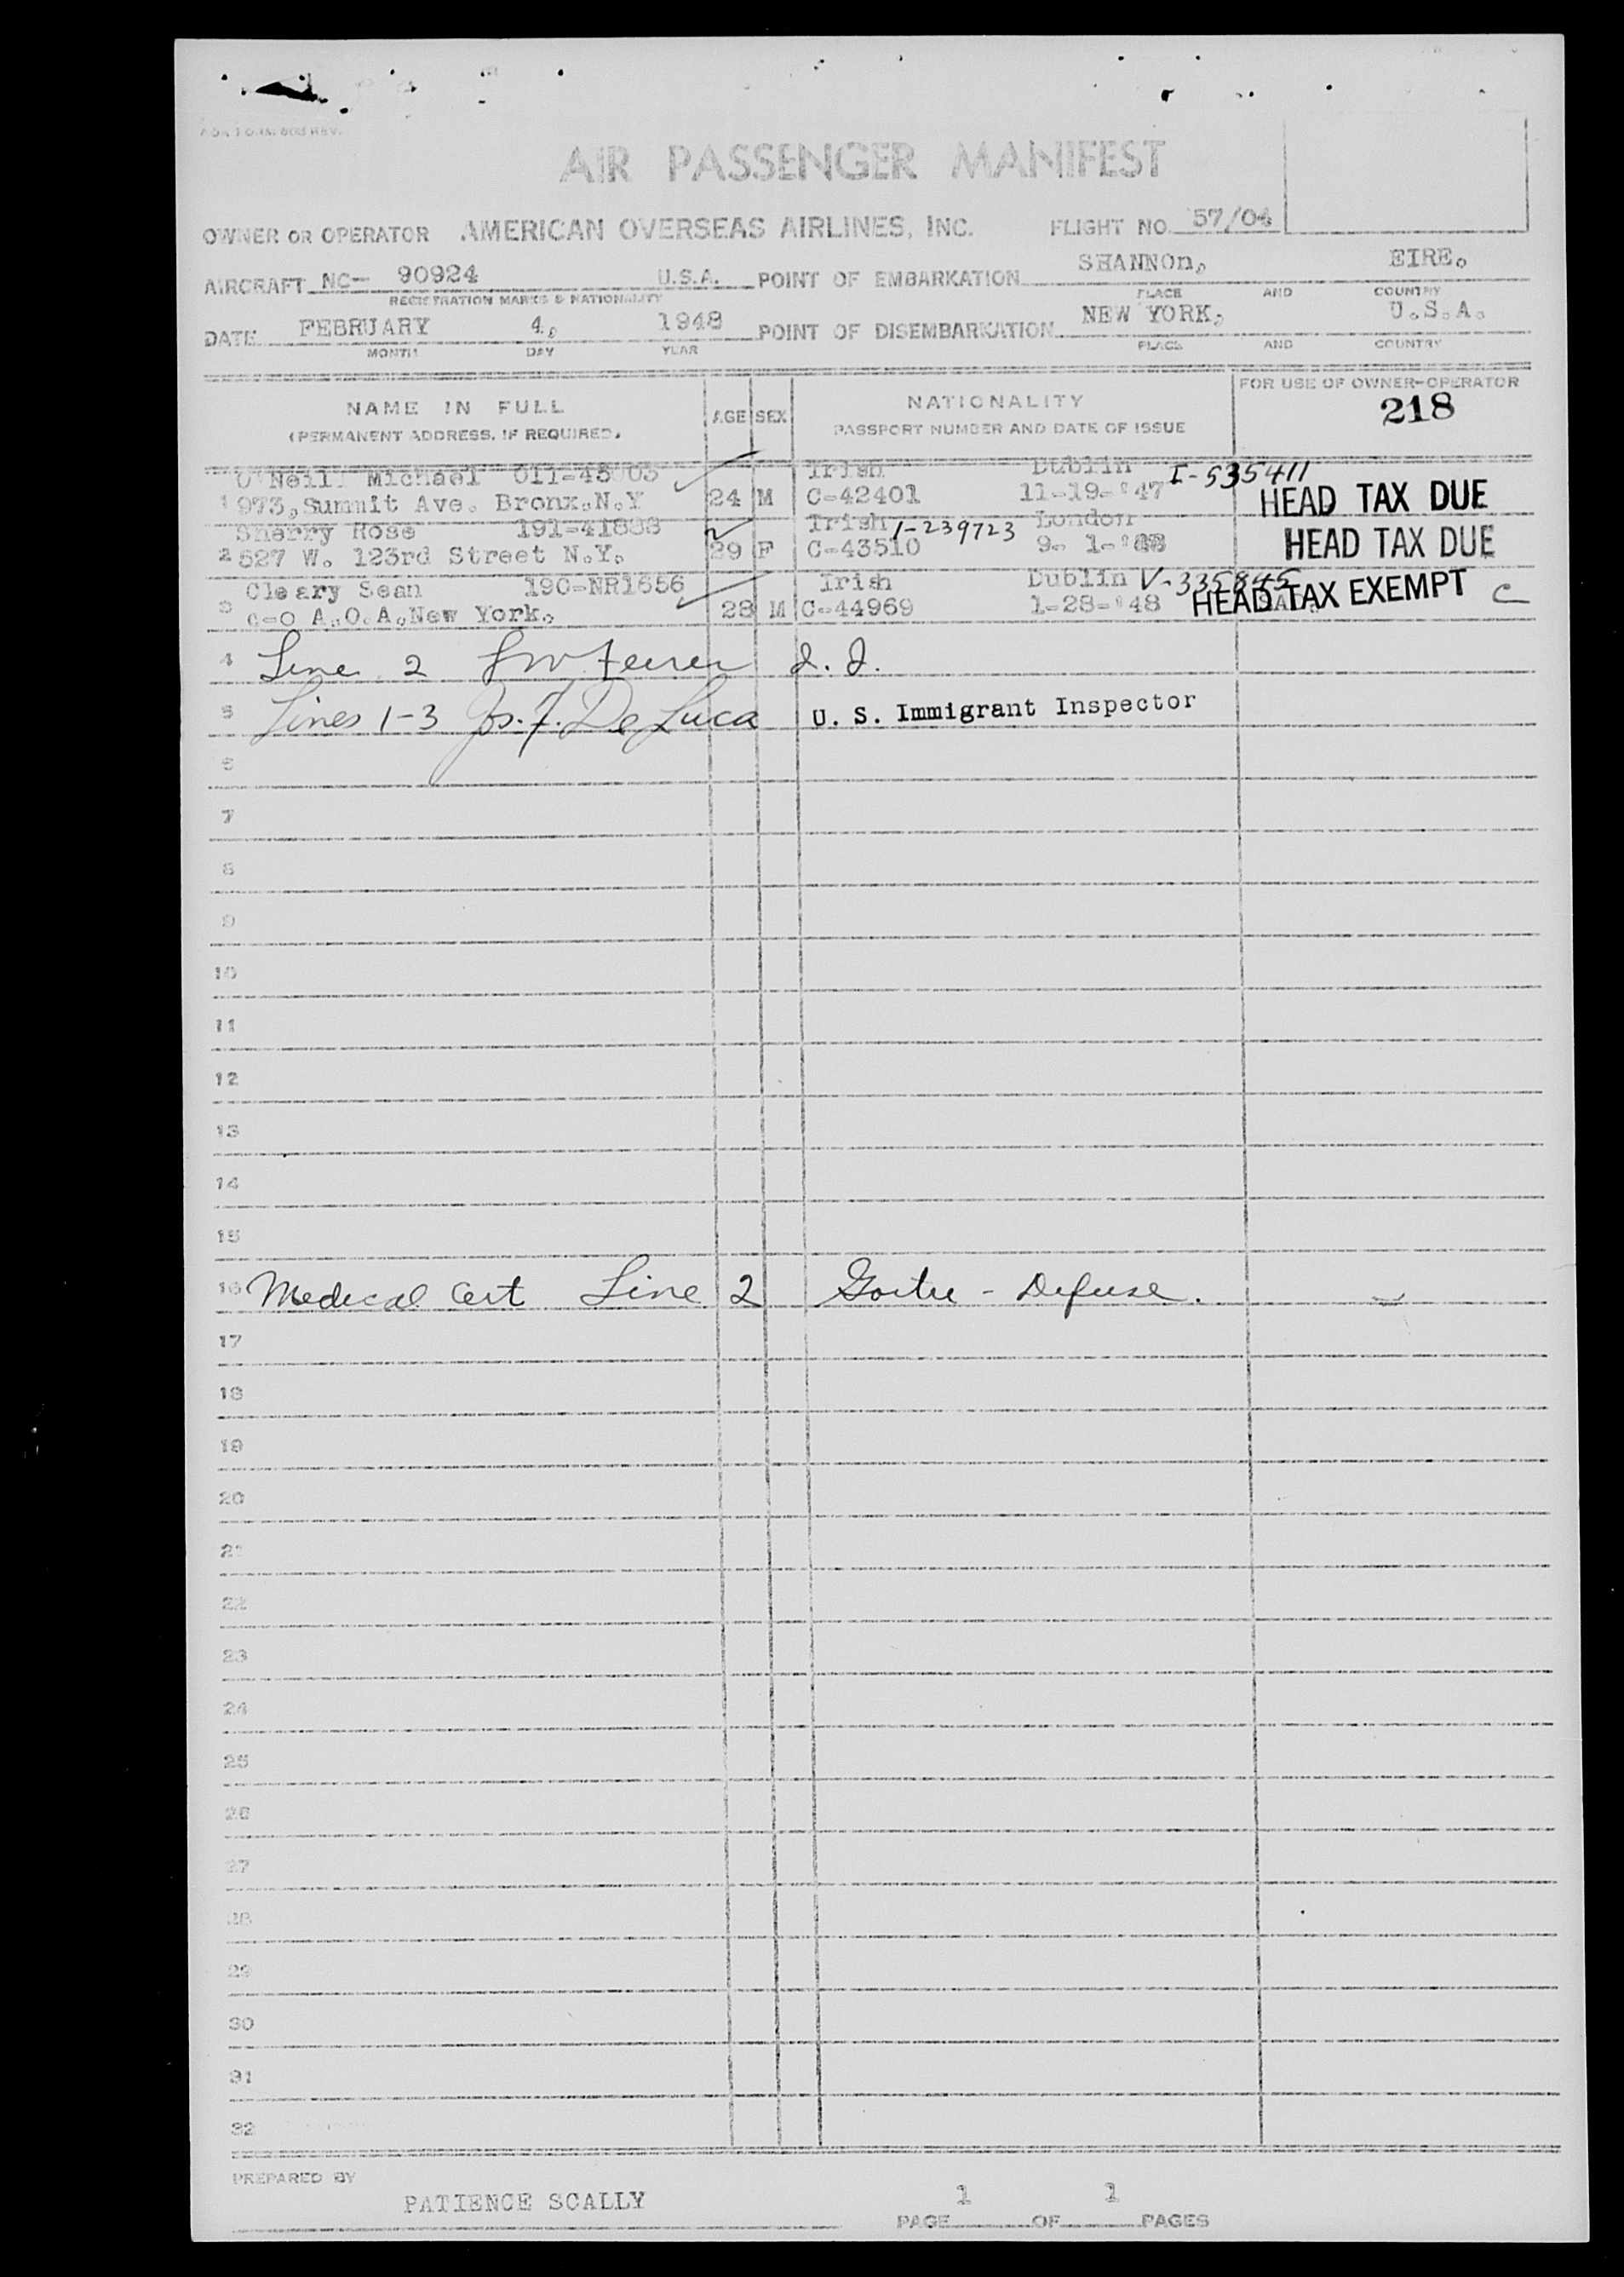 AIR PASSENGER MANIFEST
OWNER OR OPERATOR AMERICAN OVERSEAS AIRLINES, INC. FLIGHT NO. 57/04
AIRCRAFT NC- 90924 U.S.A. POINT OF EMBARKATION SHANNOn, EIRE.
REGISTRATION MARKS & NATIONALITY PLACE AND COUNTRY
DATE FEBRUARY 4, 1948 POINT OF DISEMBARKATION NEW YORK, U.S.A.
MONTH DAY YEAR PLACE AND COUNTRY
NAME IN FULL AGE SEX NATIONALITY FOR USE OF OWNER-OPERATOR
(PERMANENT ADDRESS, IF REQUIRED. PASSPORT NUMBER AND DATE OF ISSUE 218
O'Neill Michael Irish Dublin I-535411
1 973,Summit Ave. Bronx.N.Y 24 M C-42401 11-19-'47 HEAD TAX DUE
Sherry Rose 191-41888 Irish 1-239723 London
2 527 W. 123rd Street N.Y. 29 F C-43510 9- 1- HEAD TAX DUE
Cleary Sean 190-NR1656 Irish Dublin V-335845
3 c-o A.O.A.New York. 28 M C-44969 1-28-'48 HEAD TAX EXEMPT C
4 Line 2 I. I.
5 Lines 1-3 Jos. F. De Luca U. S. Immigrant Inspector
6
7
8
9
10
11
12
13
14
15
16 Medical Cert Line 2 Goitre - Defuse.
17
18
19
20
21
22
23
24
25
26
27
28
29
30
31
32
PREPARED BY
PATIENCE SCALLY
PAGE 1 OF 1 PAGES